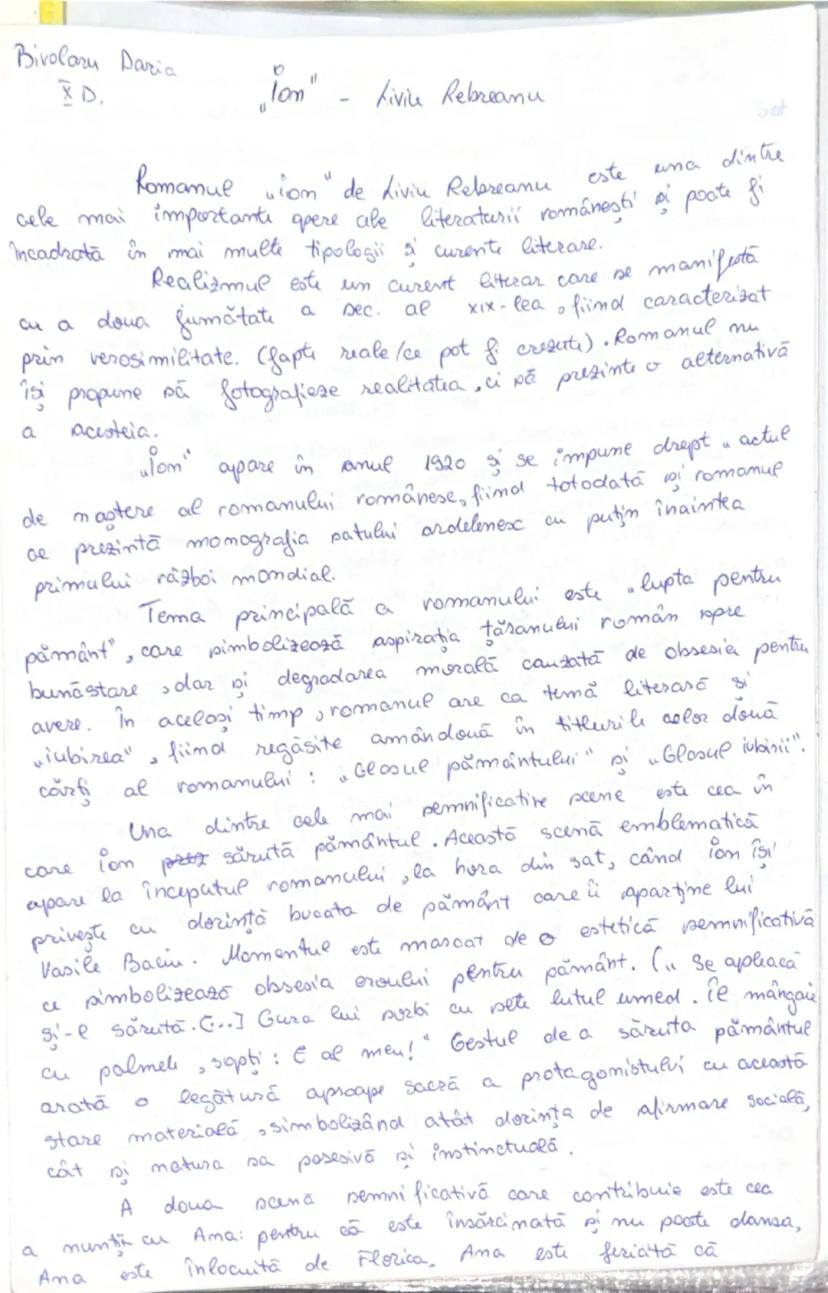 Bivolaru Daria
X D.
„Ion" - Liviu Rebreanu
Romanul „ion" de Liviu Rebreanu este una dintre
cele mai importante opere ale literaturii românești și poate fi
încadrată în mai multe tipologii și curente literare.
Realizmul este un curent literar care se manifestă
cu a doua jumătate a sec. al XIX-lea, fiind caracterizat
prin verosimilitate. (fapte reale/ce pot fi crezute). Romanul nu
își propune să fotografieze realitatea, ci să prezinte o alternativă
a acesteia.
„Ion" apare în anul 1920 și se impune drept „actul
de naștere al romanului românesc, fiind totodată și romanul
ce prezintă monografia satului ardelenesc cu puțin înainte
primului război mondial.
Tema principală a romanului este „lupta pentru
pământ", care simbolizează aspirația țăranului român spre
bunăstare, dar și degradarea morală cauzată de obsesia pentru
avere. În același timp, romanul are ca temă literară și
„iubirea", fiind regăsite amândouă în titlurile celor două
cărți al romanului: „Glasul pământului" și „Glasul iubirii".
Una dintre cele mai semnificative scene este cea în
care ion sărută pământul. Această scenă emblematică
apare la începutul romanului, la hora din sat, când ion își
privește cu dorință bucata de pământ care îi aparține lui
Vasile Baciu. Momentul este marcat de o estetică semnificativă
ce simbolizează obsesia eroului pentru pământ. („ Se apleacă
și-l sărută. [...] Gura lui sorbi cu sete lutul umed. Îl mângâie
cu palmele, șopti: E al meu!" Gestul de a săruta pământul
arată o legătură aproape sacră a protagonistului cu această
stare materială, simbolizând atât dorința de afirmare socială,
cât și natura sa posesivă și instinctuală.
A doua scenă semnificativă care contribuie este cea
a nunții cu Ana: pentru că este însărcinată și nu poate dansa,
Ana este înlocuită de Florica. Ana este că